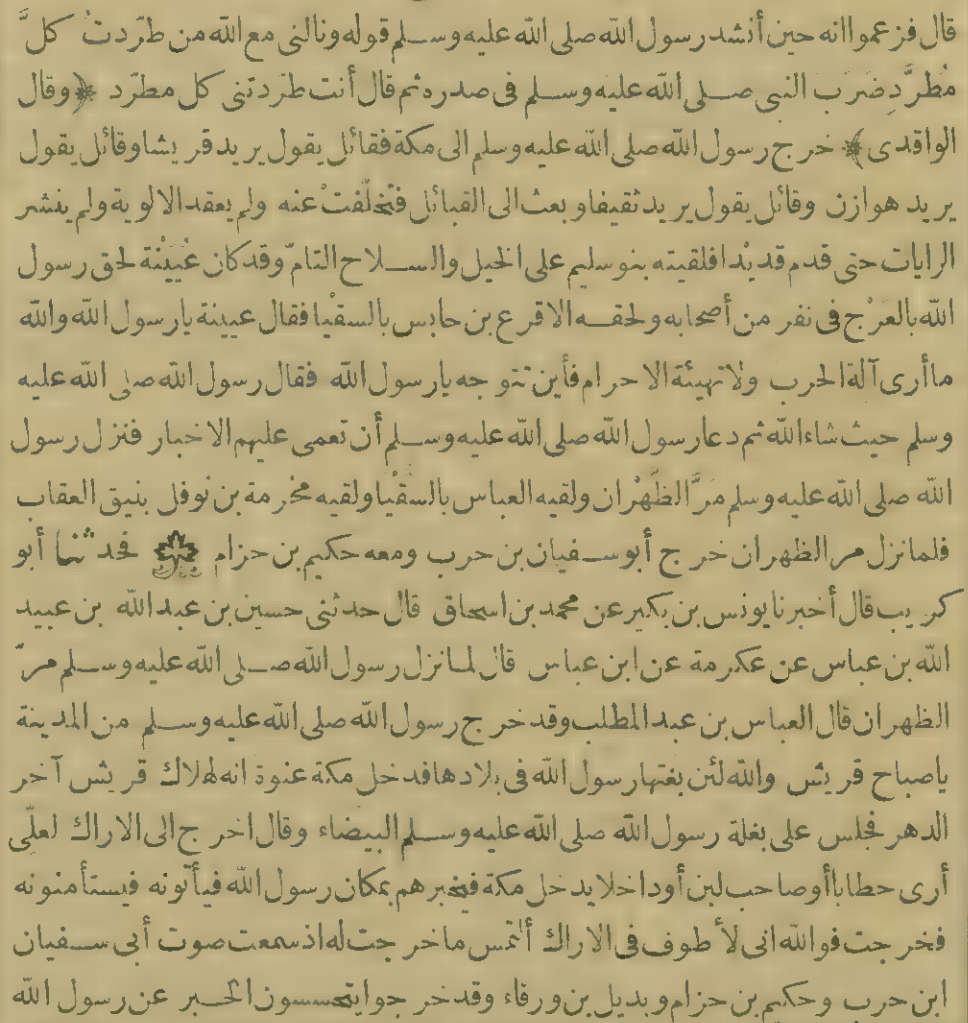 قال فزعموا انه حين أنشد رسول الله صلى الله عليه وسلم قوله ونالنى مع الله من طرّدتُ كلَّ
مُطرَّدِ ضَرَبَ النبى صلى الله عليه وسلم فى صدره ثم قال أنت طرّدتنى كل مطرّد ﴿وقال
الواقدى﴾ خرج رسول الله صلى الله عليه وسلم الى مكة فقائل يقول يريد قريشا وقائل يقول
يريد هوازن وقائل يقول يريد ثقيفا وبعث الى القبائل فتخلّفتْ عنه ولم يعقد الالوية ولم ينشر
الرايات حتى قدم قديْدا فلقيته بنو سليم على الخيل والسلاح التامّ وقد كان عُيَيْنة لحق رسول
الله بالعَرْج فى نفر من أصحابه ولحقه الاقرع بن حابس بالسقْيا فقال عيينة يا رسول الله والله
ما أرى آلة الحرب ولا تهيئة الاحرام فأين تتوجه يا رسول الله فقال رسول الله صلى الله عليه
وسلم حيث شاء الله ثم دعا رسول الله صلى الله عليه وسلم أن تعمى عليهم الاخبار فنزل رسول
الله صلى الله عليه وسلم مَرَّ الظَّهْران ولقيه العباس بالسُّقْيا ولقيه مخرمة بن نوفل بنيق العقاب
فلما نزل مر الظهران خرج أبو سفيان بن حرب ومعه حكيم بن حزام فحدثنا أبو
كريب قال أخبرنا يونس بن بكير عن محمد بن اسحاق قال حدثنى حسين بن عبد الله بن عبيد
الله بن عباس عن عكرمة عن ابن عباس قال لما نزل رسول الله صلى الله عليه وسلم مرّ
الظهران قال العباس بن عبد المطلب وقد خرج رسول الله صلى الله عليه وسلم من المدينة
يا صباح قريش والله لئن بغتها رسول الله فى بلادها فدخل مكة عنوة انه لهلاك قريش آخر
الدهر فجلس على بغلة رسول الله صلى الله عليه وسلم البيضاء وقال اخرج الى الاراك لعلّى
أرى حطابا أو صاحب لبن أو داخلا يدخل مكة فيخبرهم بمكان رسول الله فيأتونه فيستأمنونه
فخرجت فوالله انى لأطوف فى الاراك ألتمس ما خرجت له اذ سمعت صوت أبى سفيان
ابن حرب وحكيم بن حزام وبديل بن ورقاء وقد خرجوا يتحسسون الخبر عن رسول الله